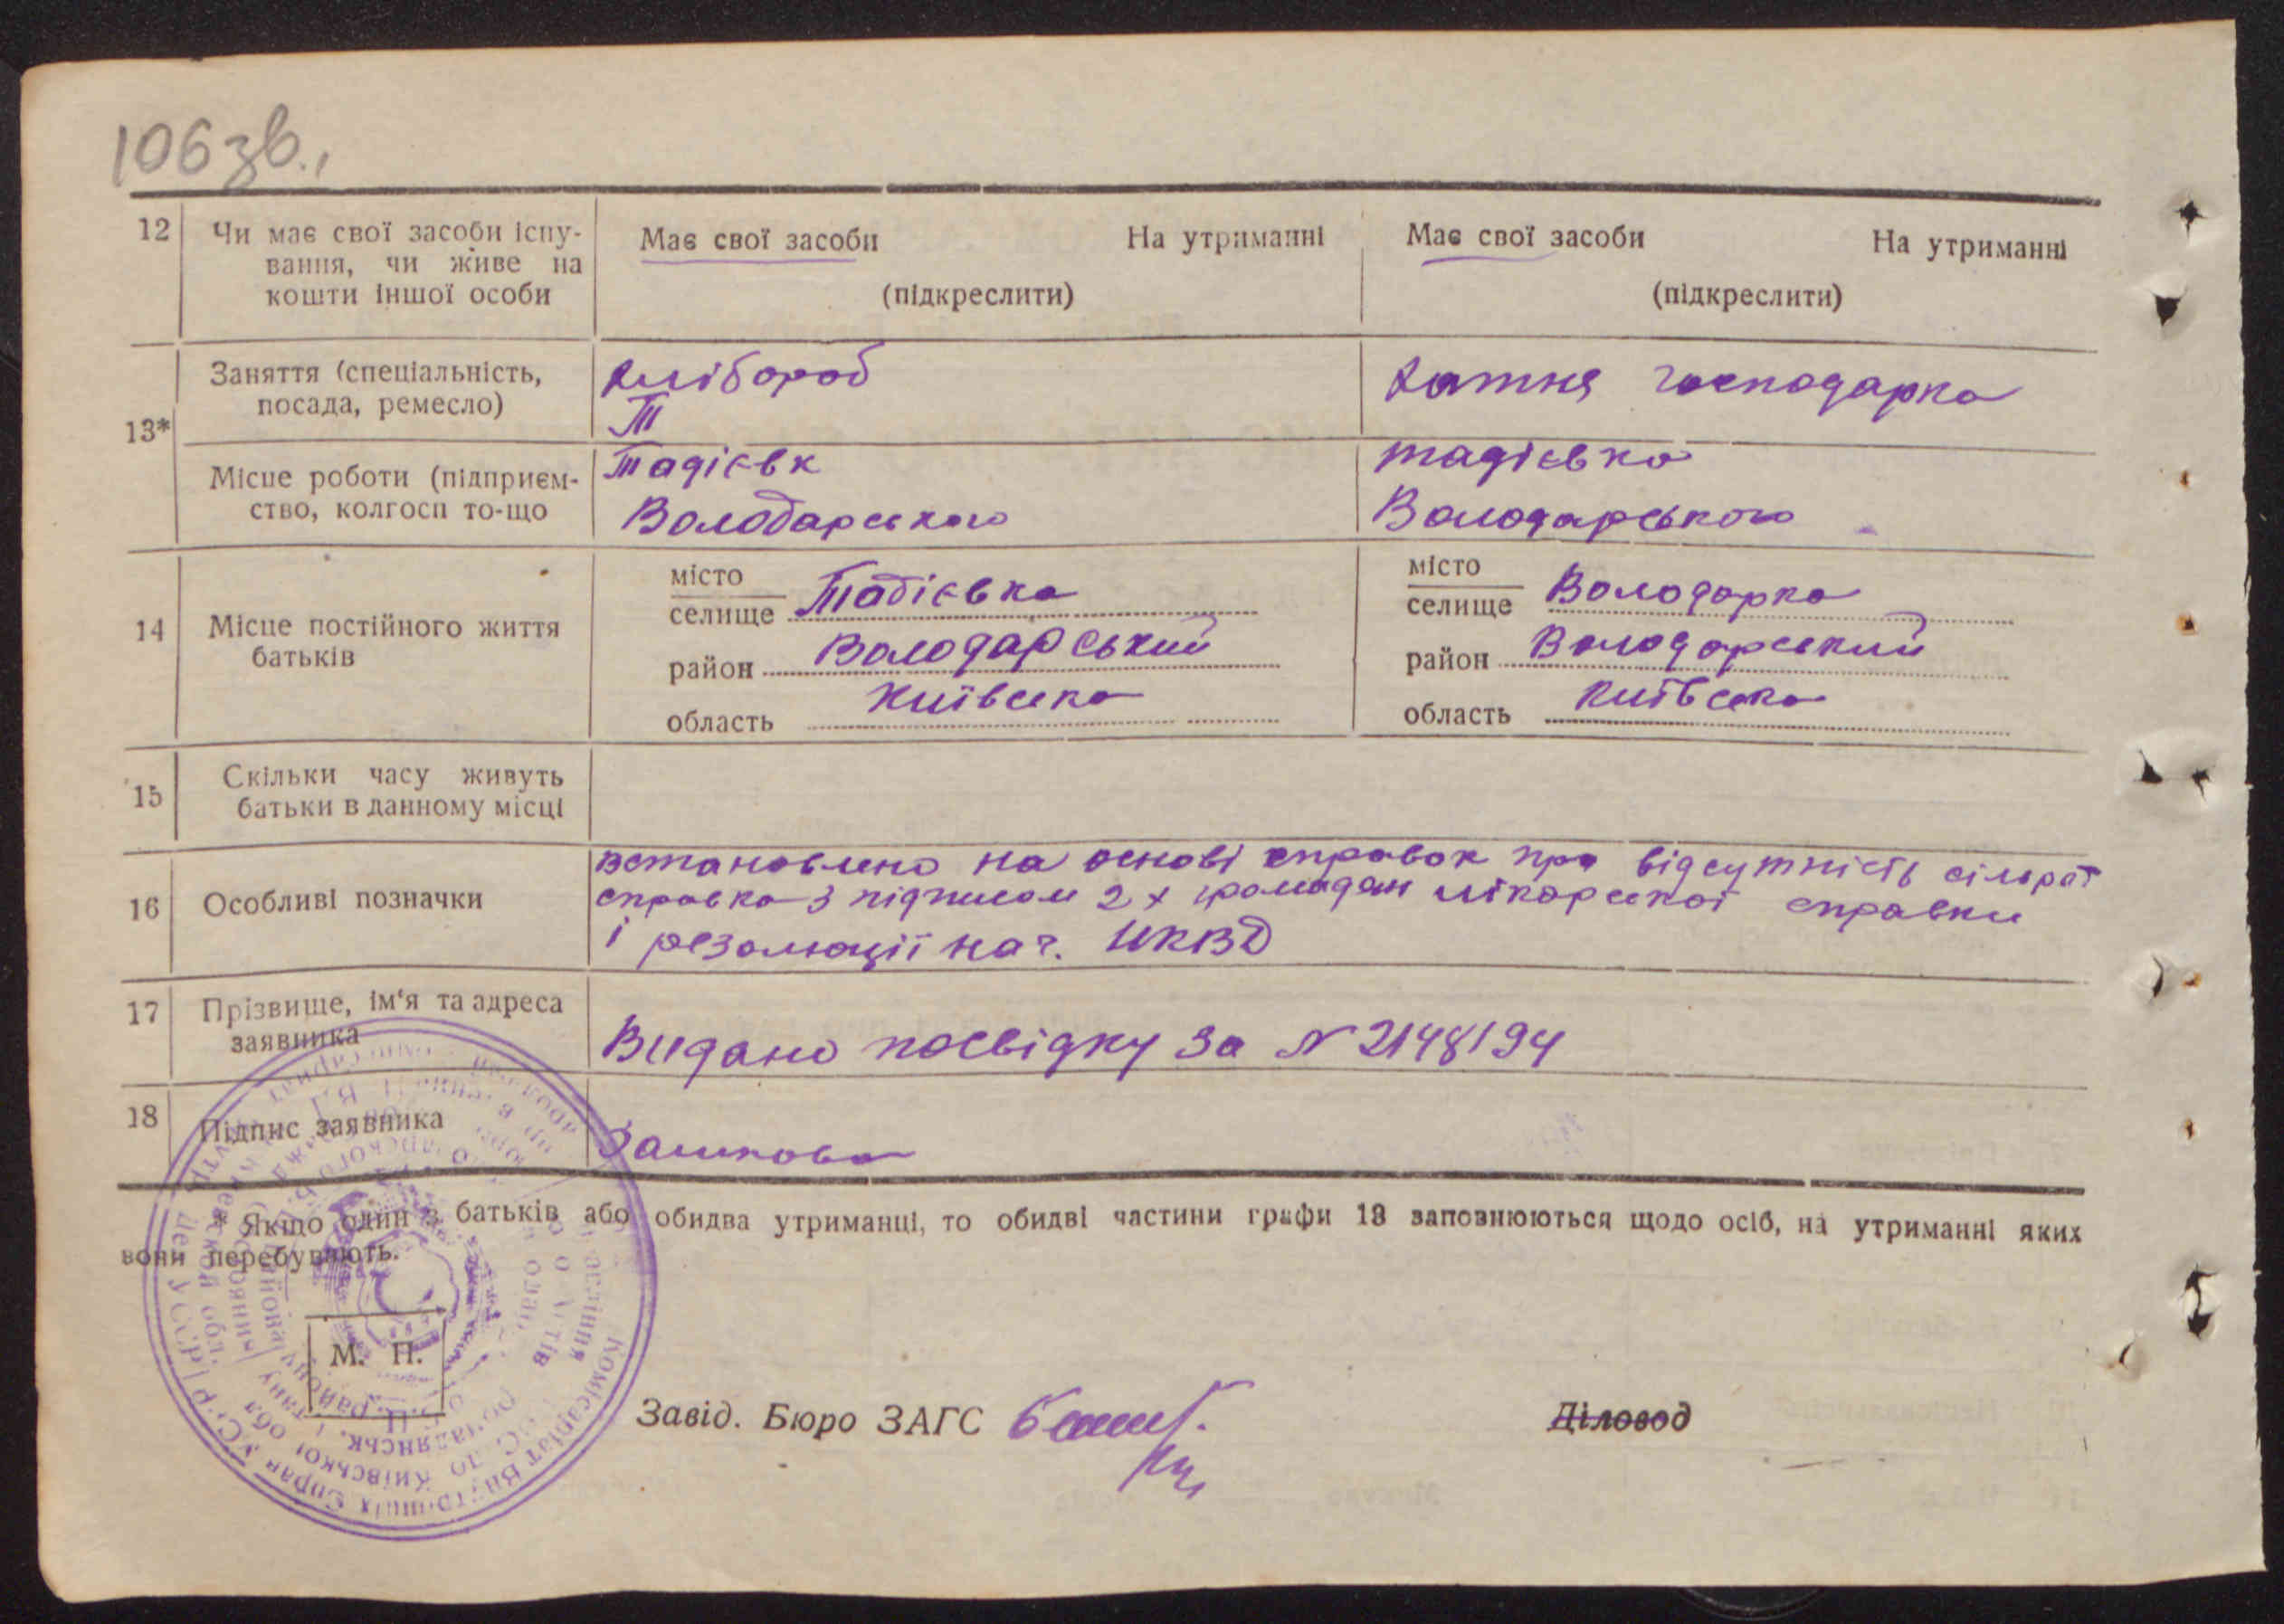 106 зв.,
12 Чи має свої засоби існу-
вання, чи живе на
кошти іншої особи
Має свої засоби На утриманні
(підкреслити)
Має свої засоби На утриманні
(підкреслити)
13*
Заняття (спеціальність,
посада, ремесло)
хлібороб
Т
хатня господарка
Місце роботи (підприєм-
ство, колгосп то-що
Тадієвк
Володарского
тадієвка
Володарського
14 Місце постійного життя
батьків
місто
селище Тадієвка
район Володарський
область Київска
місто
селище Володарка
район Володарський
область Київска
15 Скільки часу живуть
батьки в данному місці
16 Особливі позначки
встановлено на основі справок про відсутність сільрат
справка з підписом 2х громадян лікарскої справки
і резолюції нач. НКВД
17 Прізвище, ім'я та адреса
заявника
Видано посвідку за № 2148194
18 Підпис заявника
* Якщо один з батьків або обидва утриманці, то обидві частини графи 13 заповнюються щодо осіб, на утриманні яких
вони перебувають.
М. П.
Завід. Бюро ЗАГС
Діловод